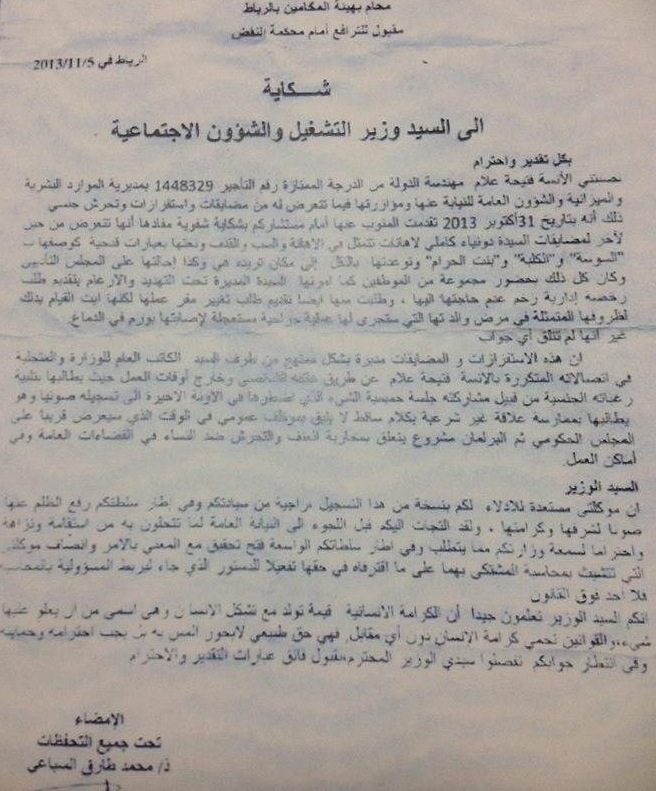 محام بهيئة المحامين بالرباط
مقبول للترافع أمام محكمة النقض
الرباط في 2013/11/5
شـــكـــاية
الى السيد وزير التشغيل والشؤون الاجتماعية
بكل تقدير واحترام
الآنسة فتيحة علام مهندسة الدولة من الدرجة الممتازة رقم التأجير 1448329 بمديرية الموارد البشرية
والميزانية والشؤون العامة للنيابة عنها ومؤازرتها فيما تتعرض له من مضايقات واستفزازات وتحرش جنسي
ذلك أنه بتاريخ 31 أكتوبر 2013 تقدمت المنوب عنها أمام مستشاركم بشكاية شفوية مفادها أنها تتعرض من حين
لآخر لمضايقات السيدة دونياء كاملي لاهانات تتمثل في الاهانة والسب والقذف ونعتها بعبارات قدحية كوصفها ب
"و "الكلبة" و "بنت الحرام" وتوعدتها بالنقل إلى مكان تريده هي وكذا إحالتها على المجلس التأديبي
وكان كل ذلك بحضور مجموعة من الموظفين كما امرتها السيدة المديرة تحت التهديد والارغام بتقديم طلب
رخصة إدارية رغم عدم حاجتها اليها ، وطلبت منها أيضا تقديم طلب تغيير مقر عملها لكنها ابت القيام بذلك
لظروفها المتمثلة في مرض والدتها التي ستجرى لها عملية جراحية مستعجلة لإصابتها بورم في الدماغ.
غير أنها لم تتلق أي جواب
ان هذه الاستفزازات و المضايقات مدبرة بشكل ممنهج من طرف السيد الكاتب العام للوزارة والمتجلية
في اتصالاته المتكررة بالآنسة فتيحة علام عن طريق هاتفه الشخصي وخارج أوقات العمل حيث يطالبها بتلبية
رغباته الجنسية من قبيل مشاركته جلسة حميمية الشيء الذي اضطرها في الآونة الاخيرة الى تسجيله صوتيا وهو
يطالبها بممارسة علاقة غير شرعية بكلام ساقط لا يليق بموظف عمومي في الوقت الذي سيعرض قريبا على
المجلس الحكومي ثم البرلمان مشروع يتعلق بمحاربة العنف والتحرش ضد النساء في الفضاءات العامة وفي
أماكن العمل.
السيد الوزير
ان موكلتي مستعدة للادلاء لكم بنسخة من هذا التسجيل راجية من سيادتكم وفي إطار سلطتكم رفع الظلم عنها
صونا لشرفها وكرامتها ، ولقد التجأت اليكم قبل اللجوء الى النيابة العامة لما تتحلون به من استقامة ونزاهة
واحتراما لسمعة وزارتكم مما يتطلب وفي إطار سلطاتكم الواسعة فتح تحقيق مع المعني بالامر وانصاف موكلتي
التي تتشبث بمحاسبة المشتكى بهما على ما اقترفاه في حقها تفعيلا للدستور الذي جاء لربط المسؤولية بالمحاسبة
فلا أحد فوق القانون
انكم السيد الوزير تعلمون جيدا أن الكرامة الانسانية قيمة تولد مع تشكل الانسان وهي اسمى من ان يعلو عليها
شيء، والقوانين تحمي كرامة الإنسان دون أي مقابل فهي حق طبيعي لا يجوز المس به بل يجب احترامه وحمايته
وفي انتظار جوابكم تفضلوا سيدي الوزير المحترم بقبول فائق عبارات التقدير والاحترام
الإمضاء
تحت جميع التحفظات
ذ/ محمد طارق السباعي